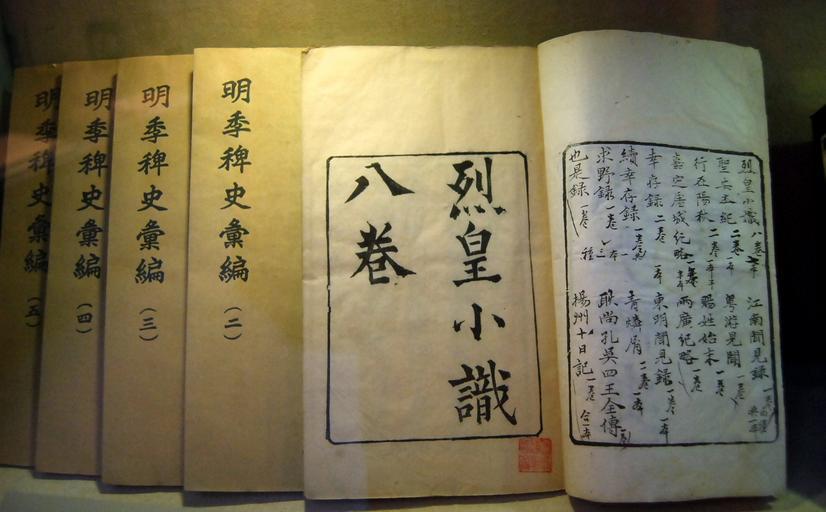 烈皇小識八卷
聖安本紀二卷一本
行在陽秋二卷一本
嘉定屠城紀略一卷
幸存錄二卷一本
續幸存錄一卷
求野錄一卷
也是錄一卷
江南聞見錄一卷
粵游見聞一卷
賜姓始末一卷
兩廣紀略一卷
東明聞見錄一卷一本
青燐屑二卷一本
耿尚孔吳四王全傳一卷
揚州十日記一卷合一本
烈皇小識
八卷
明季稗史彙編（二）
明季稗史彙編（三）
明季稗史彙編（四）
明季稗史彙編（五）